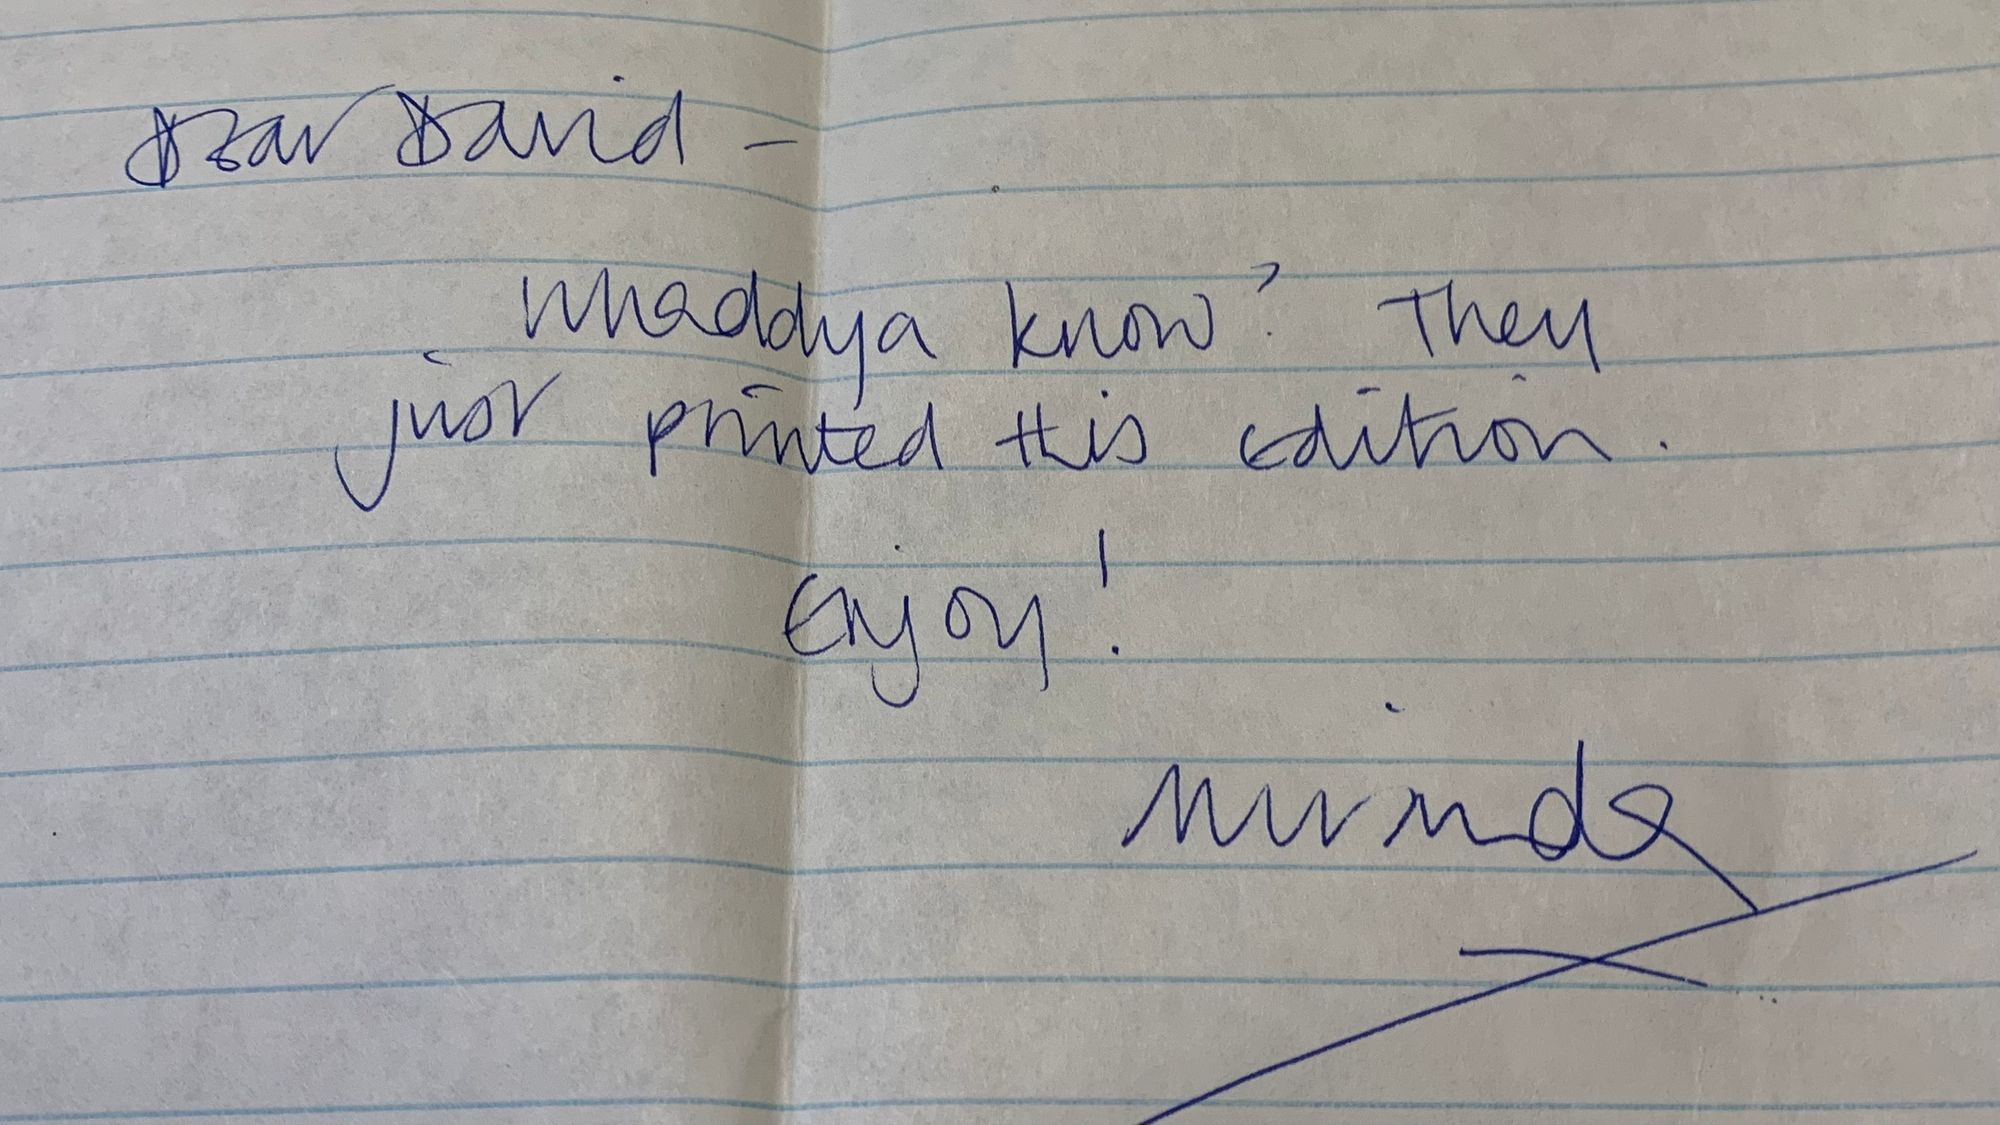 Dear David –
Whaddya know? They
just printed this edition.
Enjoy!